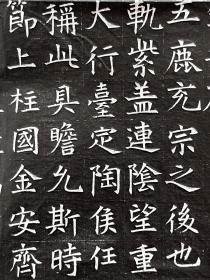 五鹿充宗之後也
軌紫盖連陰望重
大行臺定陶侯任
稱此具瞻允斯時
節上柱國金安齊